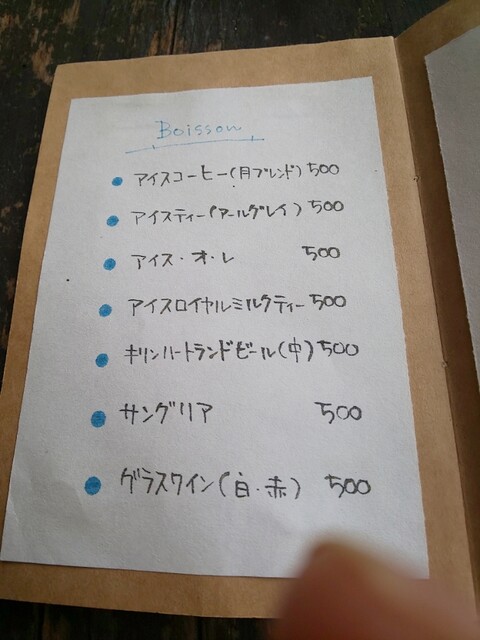 Boisson
アイスコーヒー(月ブレンド) 500
アイスティー(アールグレイ) 500
アイス・オ・レ 500
アイスロイヤルミルクティー 500
キリンハートランドビール(中) 500
サングリア 500
グラスワイン(白・赤) 500